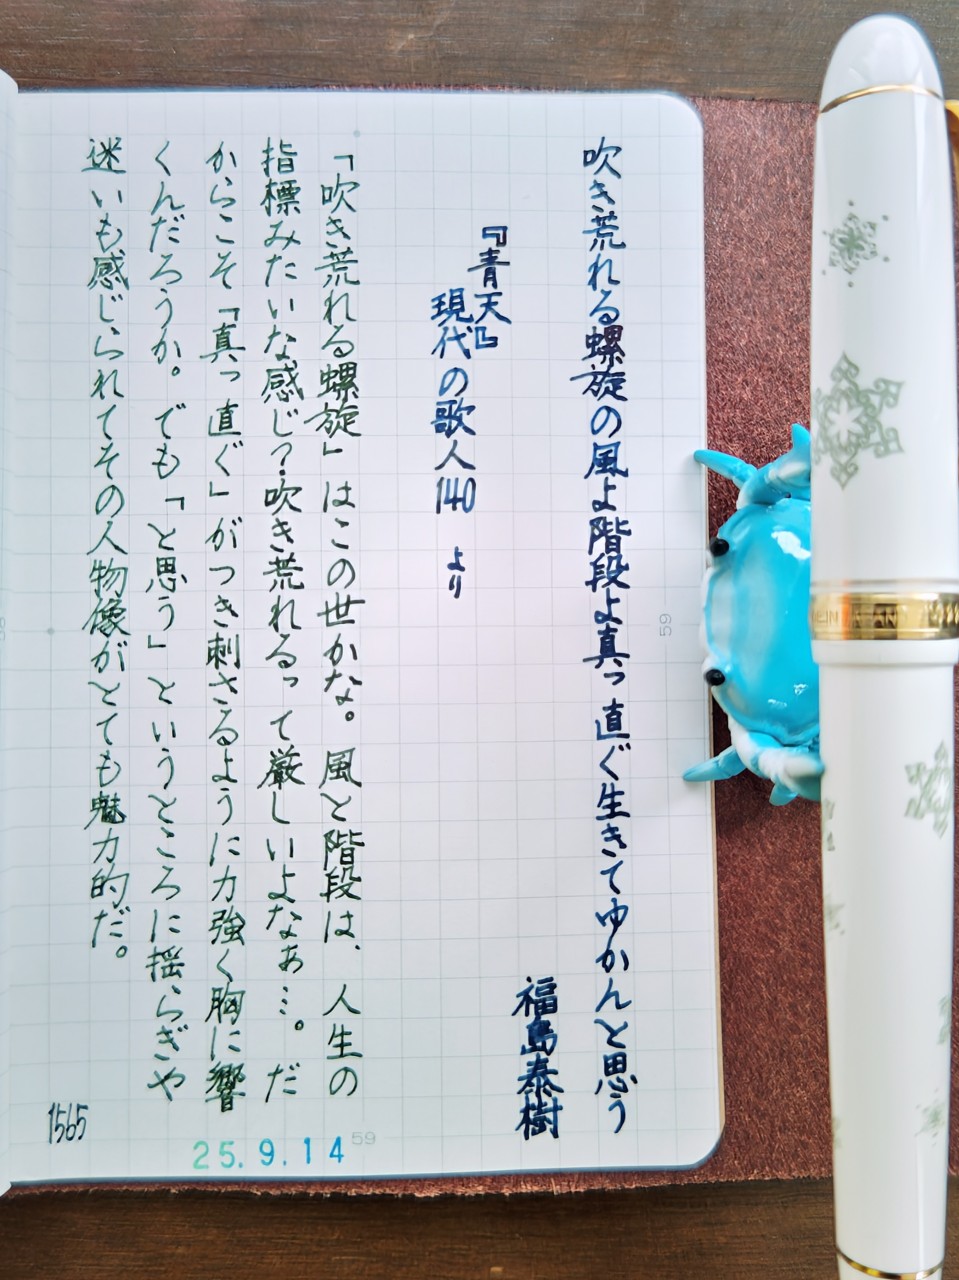 吹き荒れる螺旋の風よ階段よ真っ直ぐ生きてゆかんと思う
福島泰樹
『青天』
現代の歌人140 より
「吹き荒れる螺旋」はこの世かな。風と階段は、人生の
指標みたいな感じ?吹き荒れるって厳しいよなぁ…。だ
からこそ「真っ直ぐ」がつき刺さるように力強く胸に響
くんだろうか。でも「と思う」というところに揺らぎや
迷いも感じられてその人物像がとても魅力的だ。
1565
25.9.14
59
59